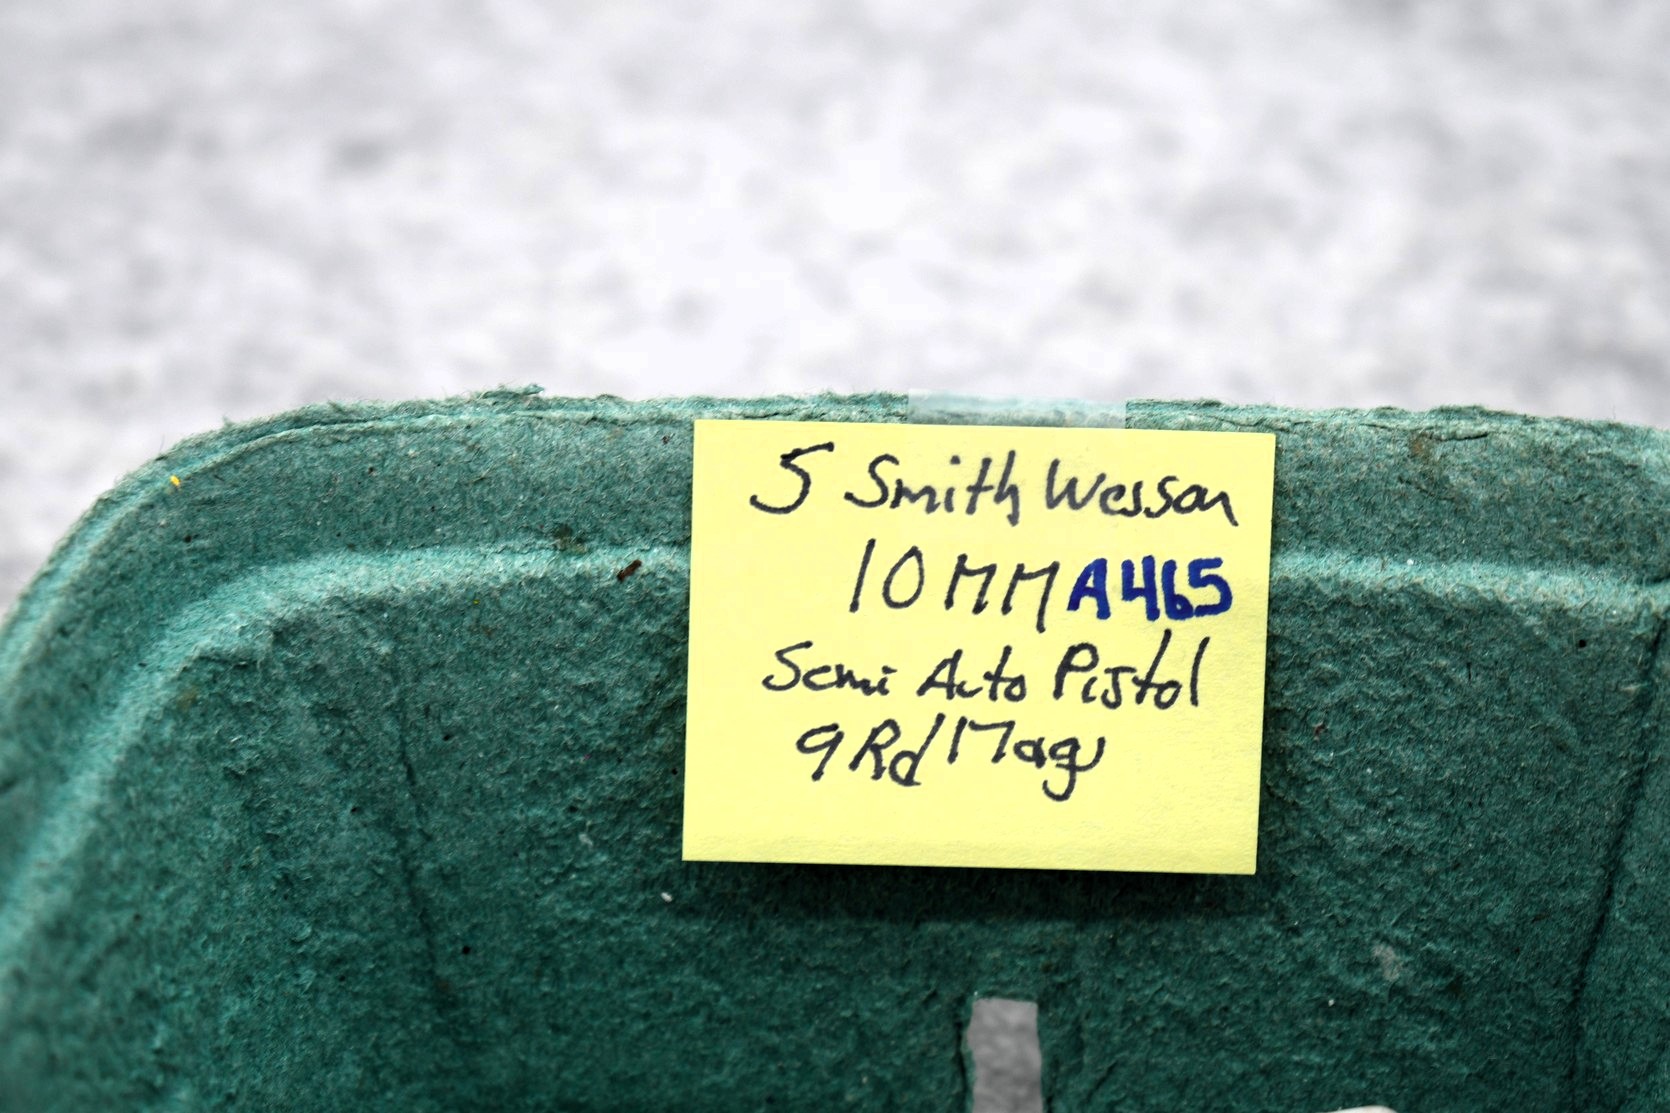 5 Smith Wesson
10 MM A465
Semi Auto Pistol
9 Rd Mags